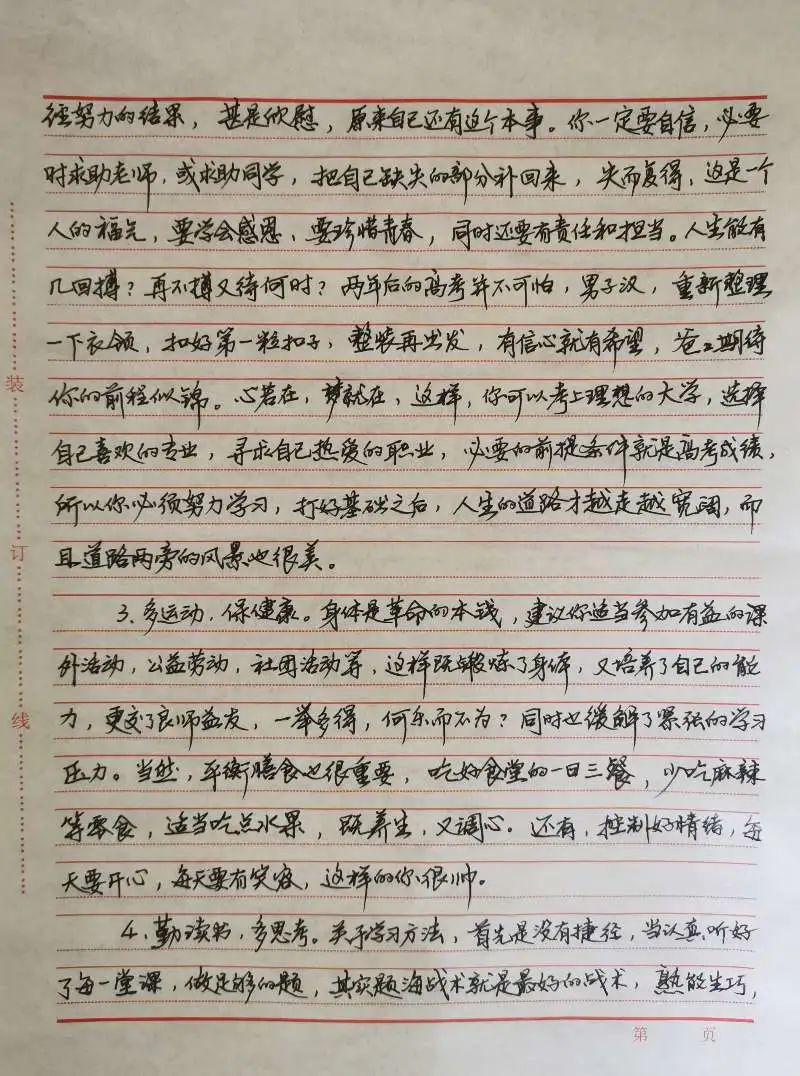 径努力的结果，甚是欣慰，原来自己还有这个本事。你一定要自信，必要
时求助老师，或求助同学，把自己缺失的部分补回来，失而复得，这是一个
人的福气，要学会感恩、要珍惜青春，同时还要有责任和担当。人生能有
几回搏？再不搏又待何时？两年后的高考并不可怕，男子汉，重新整理
一下衣领，扣好第一粒扣子，整装再出发，有信心就有希望，爸爸期待
你的前程似锦。心若在，梦就在，这样，你可以考上理想的大学，选择
自己喜欢的专业，寻求自己热爱的职业，必要的前提条件就是高考成绩，
所以你必须努力学习，打好基础之后，人生的道路才越走越宽阔，而
且道路两旁的风景也很美。
3、多运动，保健康。身体是革命的本钱，建议你适当参加有益的课
外活动，公益劳动，社团活动等，这样既锻炼了身体，又培养了自己的能
力，更交了良师益友，一举多得，何乐而不为？同时也缓解了紧张的学习
压力。当然，平衡膳食也很重要，吃好食堂的一日三餐，少吃麻辣
等零食，适当吃点水果，既养生，又调心。还有，控制好情绪，每
天要开心，每天要有笑容，这样的你很帅。
4、勤读书，多思考。关于学习方法，首先是没有捷径，当认真听好
了每一堂课，做足够的题，其实题海战术就是最好的战术，熟能生巧，
装
订
线
第 页